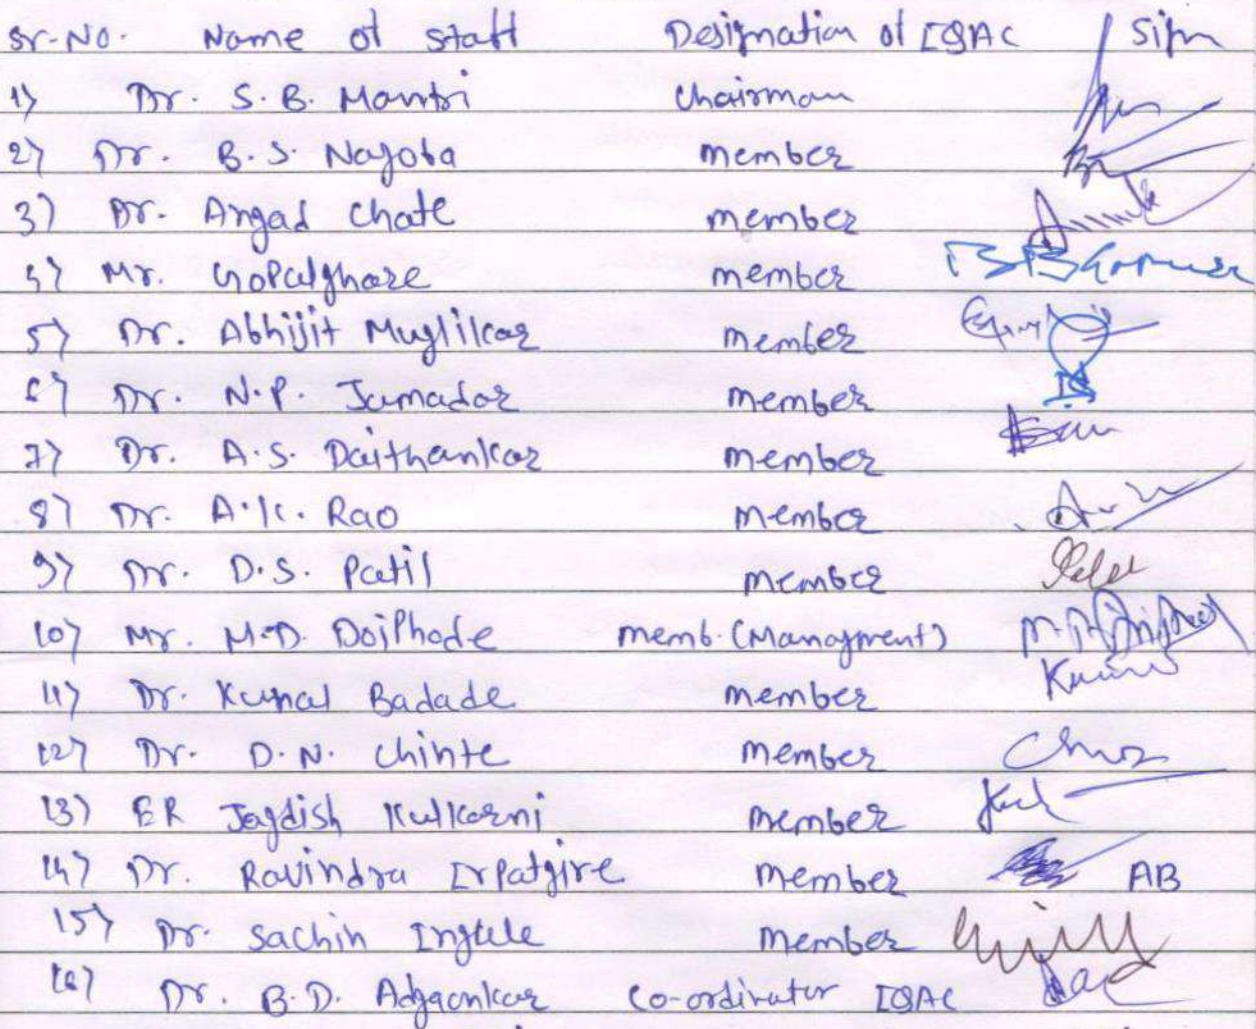 Sr-No. Name of Staff Designation of IQAC Sign
1) Dr. S.B. Mantri Chairman
2) Dr. B.S. Nagoba member
3) Dr. Angad Chate member
4) Mr. Gopalghare member
5) Dr. Abhijit Muglikar member
6) Dr. N.P. Jamadar member
7) Dr. A.S. Daithankar member
8) Dr. A.K. Rao member
9) Dr. D.S. Patil member
10) Mr. M.D. Doiphode memb. (Managment)
11) Dr. Kunal Badade member
12) Dr. D.N. Chinte member
13) ER Jagdish Kulkarni member
14) Dr. Ravindra Irpatgire member AB
15) Dr. Sachin Ingule member
16) Dr. B.D. Adgaonkar Co-ordinator IQAC